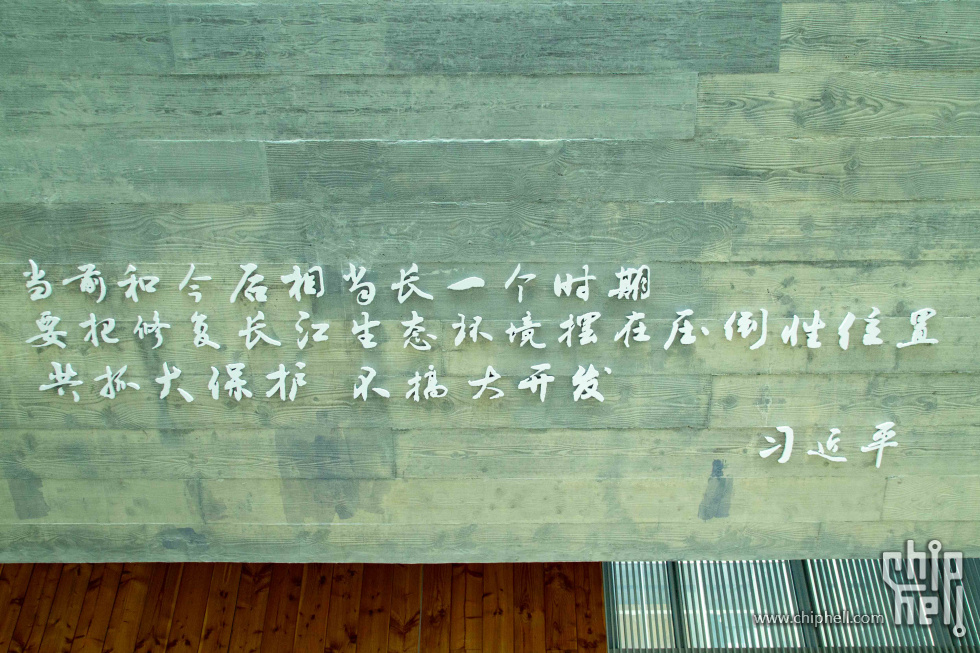 当前和今后相当长一个时期
要把修复长江生态环境摆在压倒性位置
共抓大保护 不搞大开发
习近平
chip
hell
www.chiphell.com